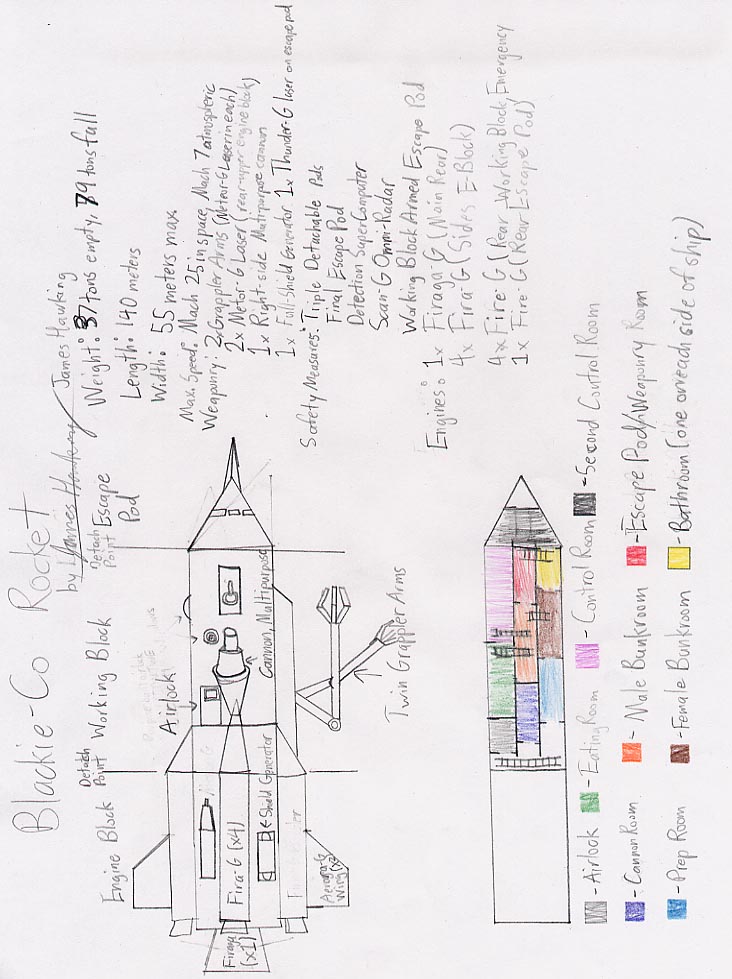 Blackie-Co Rocket
by James Hawking James Hawking
Weight: 37 tons empty, 79 tons full
Length: 140 meters
Width: 55 meters max
Max. Speed: Mach 25 in space, Mach 7 atmospheric
Weaponry: 2x Grappler Arms (Meteor-G Laser in each)
2x Metor-G Laser (rear-upper engine block)
1x Right-side Multipurpose cannon
1x Full-Shield Generator 1x Thunder-G laser on escape pod
Safety Measures: Triple Detachable Pods
Final Escape Pod
Detection SuperComputer
Scan-G Omni-Radar
Working Block Armed Escape Pod
Engines: 1x Firaga-G (Main Rear)
4x Fira-G (Sides E-Block)
4x Fire-G (Rear Working Block, Emergency
1x Fire-G (Rear Escape Pod)
Engine Block
Detach
Point
Working Block
Detach
Point
Escape
Pod
Airlock
Cannon, Multipurpose
Shield Generator
Fira-G (x4)
Firaga
(x1)
Aeroga-G
Wing (x2)
Twin Grappler Arms
- Airlock
- Eating Room
- Control Room
- Second Control Room
- Cannon Room
- Male Bunkroom
- Escape Pod/Weaponry Room
- Prep Room
- Female Bunkroom
- Bathroom (one on each side of ship)